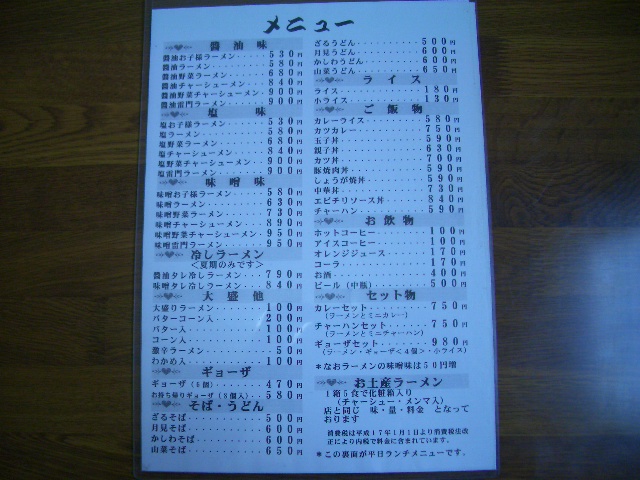 メニュー
醤油味
醤油お子様ラーメン・・・530円
醤油ラーメン・・・・・・580円
醤油野菜ラーメン・・・・680円
醤油チャーシューメン・・840円
醤油野菜チャーシューメン・・900円
醤油雷門ラーメン・・・・900円
塩味
塩お子様ラーメン・・・・530円
塩ラーメン・・・・・・・580円
塩野菜ラーメン・・・・・680円
塩チャーシューメン・・・840円
塩野菜チャーシューメン・・900円
塩雷門ラーメン・・・・・900円
味噌味
味噌お子様ラーメン・・・580円
味噌ラーメン・・・・・・630円
味噌野菜ラーメン・・・・730円
味噌チャーシューメン・・890円
味噌野菜チャーシューメン・・950円
味噌雷門ラーメン・・・・950円
冷しラーメン
＜夏期のみです＞
醤油タレ冷しラーメン・・790円
味噌タレ冷しラーメン・・840円
大盛他
大盛りラーメン・・・・・100円
バターコーン入・・・・・200円
バター入・・・・・・・・100円
コーン入・・・・・・・・100円
激辛ラーメン・・・・・・50円
わかめ入・・・・・・・・100円
ギョーザ
ギョーザ（6個）・・・・470円
お持ち帰りギョーザ（8個入）・・580円
そば・うどん
ざるそば・・・・・・・・500円
月見そば・・・・・・・・600円
かしわそば・・・・・・・600円
山菜そば・・・・・・・・650円
ざるうどん・・・・・・・500円
月見うどん・・・・・・・600円
かしわうどん・・・・・・600円
山菜うどん・・・・・・・650円
ライス
ライス・・・・・・・・・180円
小ライス・・・・・・・・130円
ご飯物
カレーライス・・・・・・580円
カツカレー・・・・・・・750円
玉子丼・・・・・・・・・590円
親子丼・・・・・・・・・630円
カツ丼・・・・・・・・・700円
豚焼肉丼・・・・・・・・590円
しょうが焼丼・・・・・・590円
中華丼・・・・・・・・・730円
エビチリソース丼・・・・840円
チャーハン・・・・・・・590円
お飲物
ホットコーヒー・・・・・100円
アイスコーヒー・・・・・100円
オレンジジュース・・・・170円
コーラ・・・・・・・・・170円
お酒・・・・・・・・・・400円
ビール（中瓶）・・・・・500円
セット物
カレーセット・・・・・・750円
（ラーメンとミニカレー）
チャーハンセット・・・・750円
（ラーメンとミニチャーハン）
ギョーザセット・・・・・980円
（ラーメン・ギョーザ＜4個＞・小ライス）
＊なおラーメンの味噌味は50円増
お土産ラーメン
1箱5食で化粧箱入り
（チャーシュー・メンマ入）
店と同じ 味・量・料金 となって
おります
消費税は平成17年1月1日より消費税法改
正により内税で料金に含まれています。
＊この裏面が平日ランチメニューです。